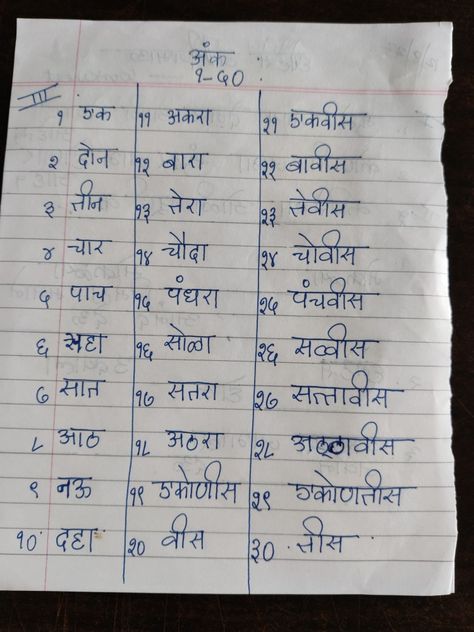 अंक
१-५०
III
१ एक ११ अकरा २१ एकवीस
२ दोन १२ बारा २२ बावीस
३ तीन १३ तेरा २३ तेवीस
४ चार १४ चौदा २४ चोवीस
५ पाच १५ पंधरा २५ पंचवीस
६ सहा १६ सोळा २६ सव्वीस
७ सात १७ सतरा २७ सत्तावीस
८ आठ १८ अठरा २८ अठ्ठावीस
९ नऊ १९ एकोणीस २९ एकोणतीस
१० दहा २० वीस ३० तीस